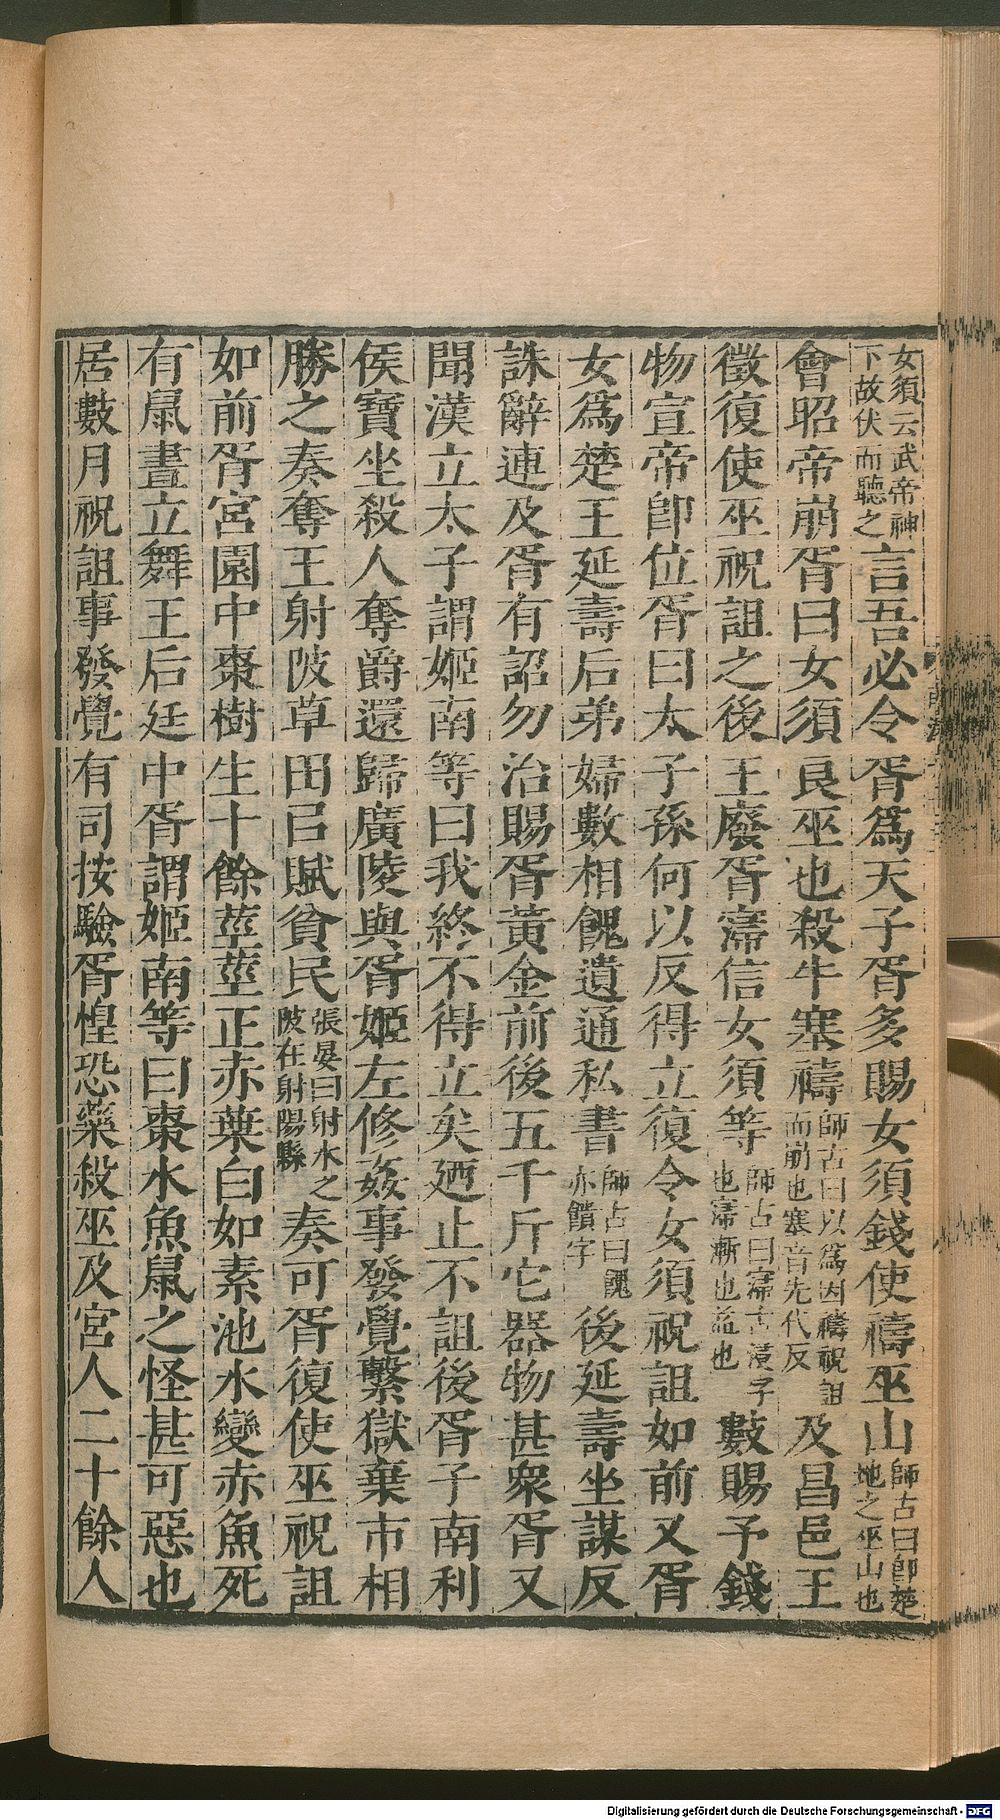 女須云武帝神下故伏而聽之言吾必令胥爲天子胥多賜女須錢使禱巫山師古曰卽楚地之巫山也
會昭帝崩胥曰女須良巫也殺牛塞禱師古曰以爲因禱祝詛而崩也塞音先代反及昌邑王
徵復使巫祝詛之後王廢胥寖信女須等師古曰寖古浸字也寖漸也益也數賜予錢
物宣帝卽位胥曰太子孫何以反得立復令女須祝詛如前又胥
女爲楚王延壽后弟婦數相餽遺通私書師古曰餽亦饋字後延壽坐謀反
誅辭連及胥有詔勿治賜胥黃金前後五千斤它器物甚衆胥又
聞漢立太子謂姬南等曰我終不得立矣廼止不詛後胥子南利
侯寶坐殺人奪爵還歸廣陵與胥姬左修姦事發覺繫獄棄市相
勝之奏奪王射陂草田㠯賦貧民張晏曰射水之陂在射陽縣奏可胥復使巫祝詛
如前胥宮園中棗樹生十餘莖莖正赤葉白如素池水變赤魚死
有鼠晝立舞王后廷中胥謂姬南等曰棗水魚鼠之怪甚可惡也
居數月祝詛事發覺有司按驗胥惶恐藥殺巫及宮人二十餘人
Digitalisierung gefördert durch die Deutsche Forschungsgemeinschaft - DFG